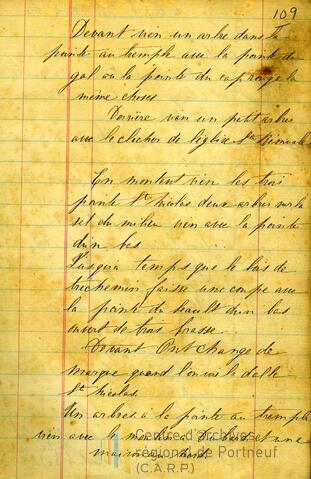 109
Devant vien un arbre dans la
pointe au tremple avec la pointe du
gal ou la pointe du cap rouge la
même chose
Derrière vien un petit arbre
avec le clocher de l'église St
En montent vien les trois
pointe St Nicolas deux arbres sur le
set du milieu vien avec la pointe
d'un bas
Lusqu'a temps que le bas de
faisse une coupe avec
la pointe du seault d'un bas
ouvert de trois brasse
Devant Ont change de
marque quand l'on vois le dalle
St Nicolas
Un arbres a la pointe au tremple
vien avec le du bord et une
maison au nord
Centre d'archives
régionales de Portneuf
(C.A.R.P.)